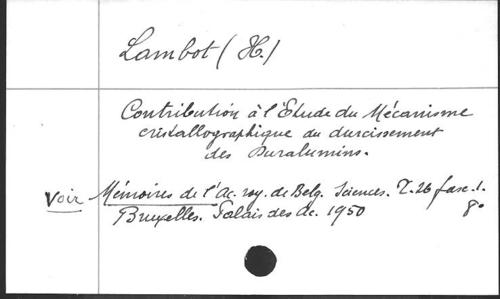 Lambot (H.)
Contribution à l'Etude du Mécanisme
cristallographique du durcissement
des Duralumins.
Voir Mémoires de l'Ac. roy. de Belg. Sciences. T. 26 fasc. 1.
Bruxelles. Palais des Ac. 1950 8°